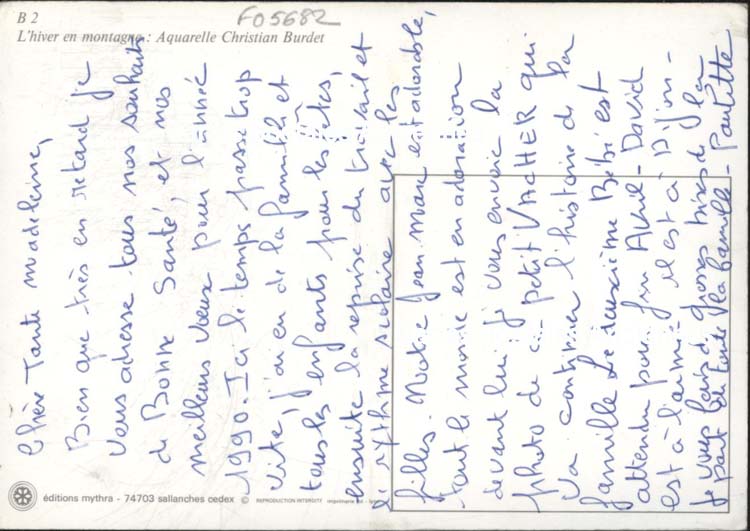 B 2
FO5682
L'hiver en montagne : Aquarelle Christian Burdet
Chère Tante Madeleine,
Bien que très en retard je
vous adresse tous nos souhaits
de Bonne Santé, et nos
meilleurs vœux pour l'année
1990. Ici le temps passe trop
vite, j'ai eu de la famille et
tous les enfants pour les fêtes,
ensuite la reprise du travail et
le rythme scolaire avec les
filles. Notre Jean Marc est adorable,
tout le monde est en adoration
devant lui; je vous envoie la
photo de ce petit VACHER qui
va continuer l'histoire de la
famille. Le deuxième Bébé est
attendu pour fin Avril - David
est à l'armée il est à Dijon -
Je vous fais de grosses bises de la
part de toute la famille - Paulette
éditions mythra - 74703 sallanches cedex ©
REPRODUCTION INTERDITE